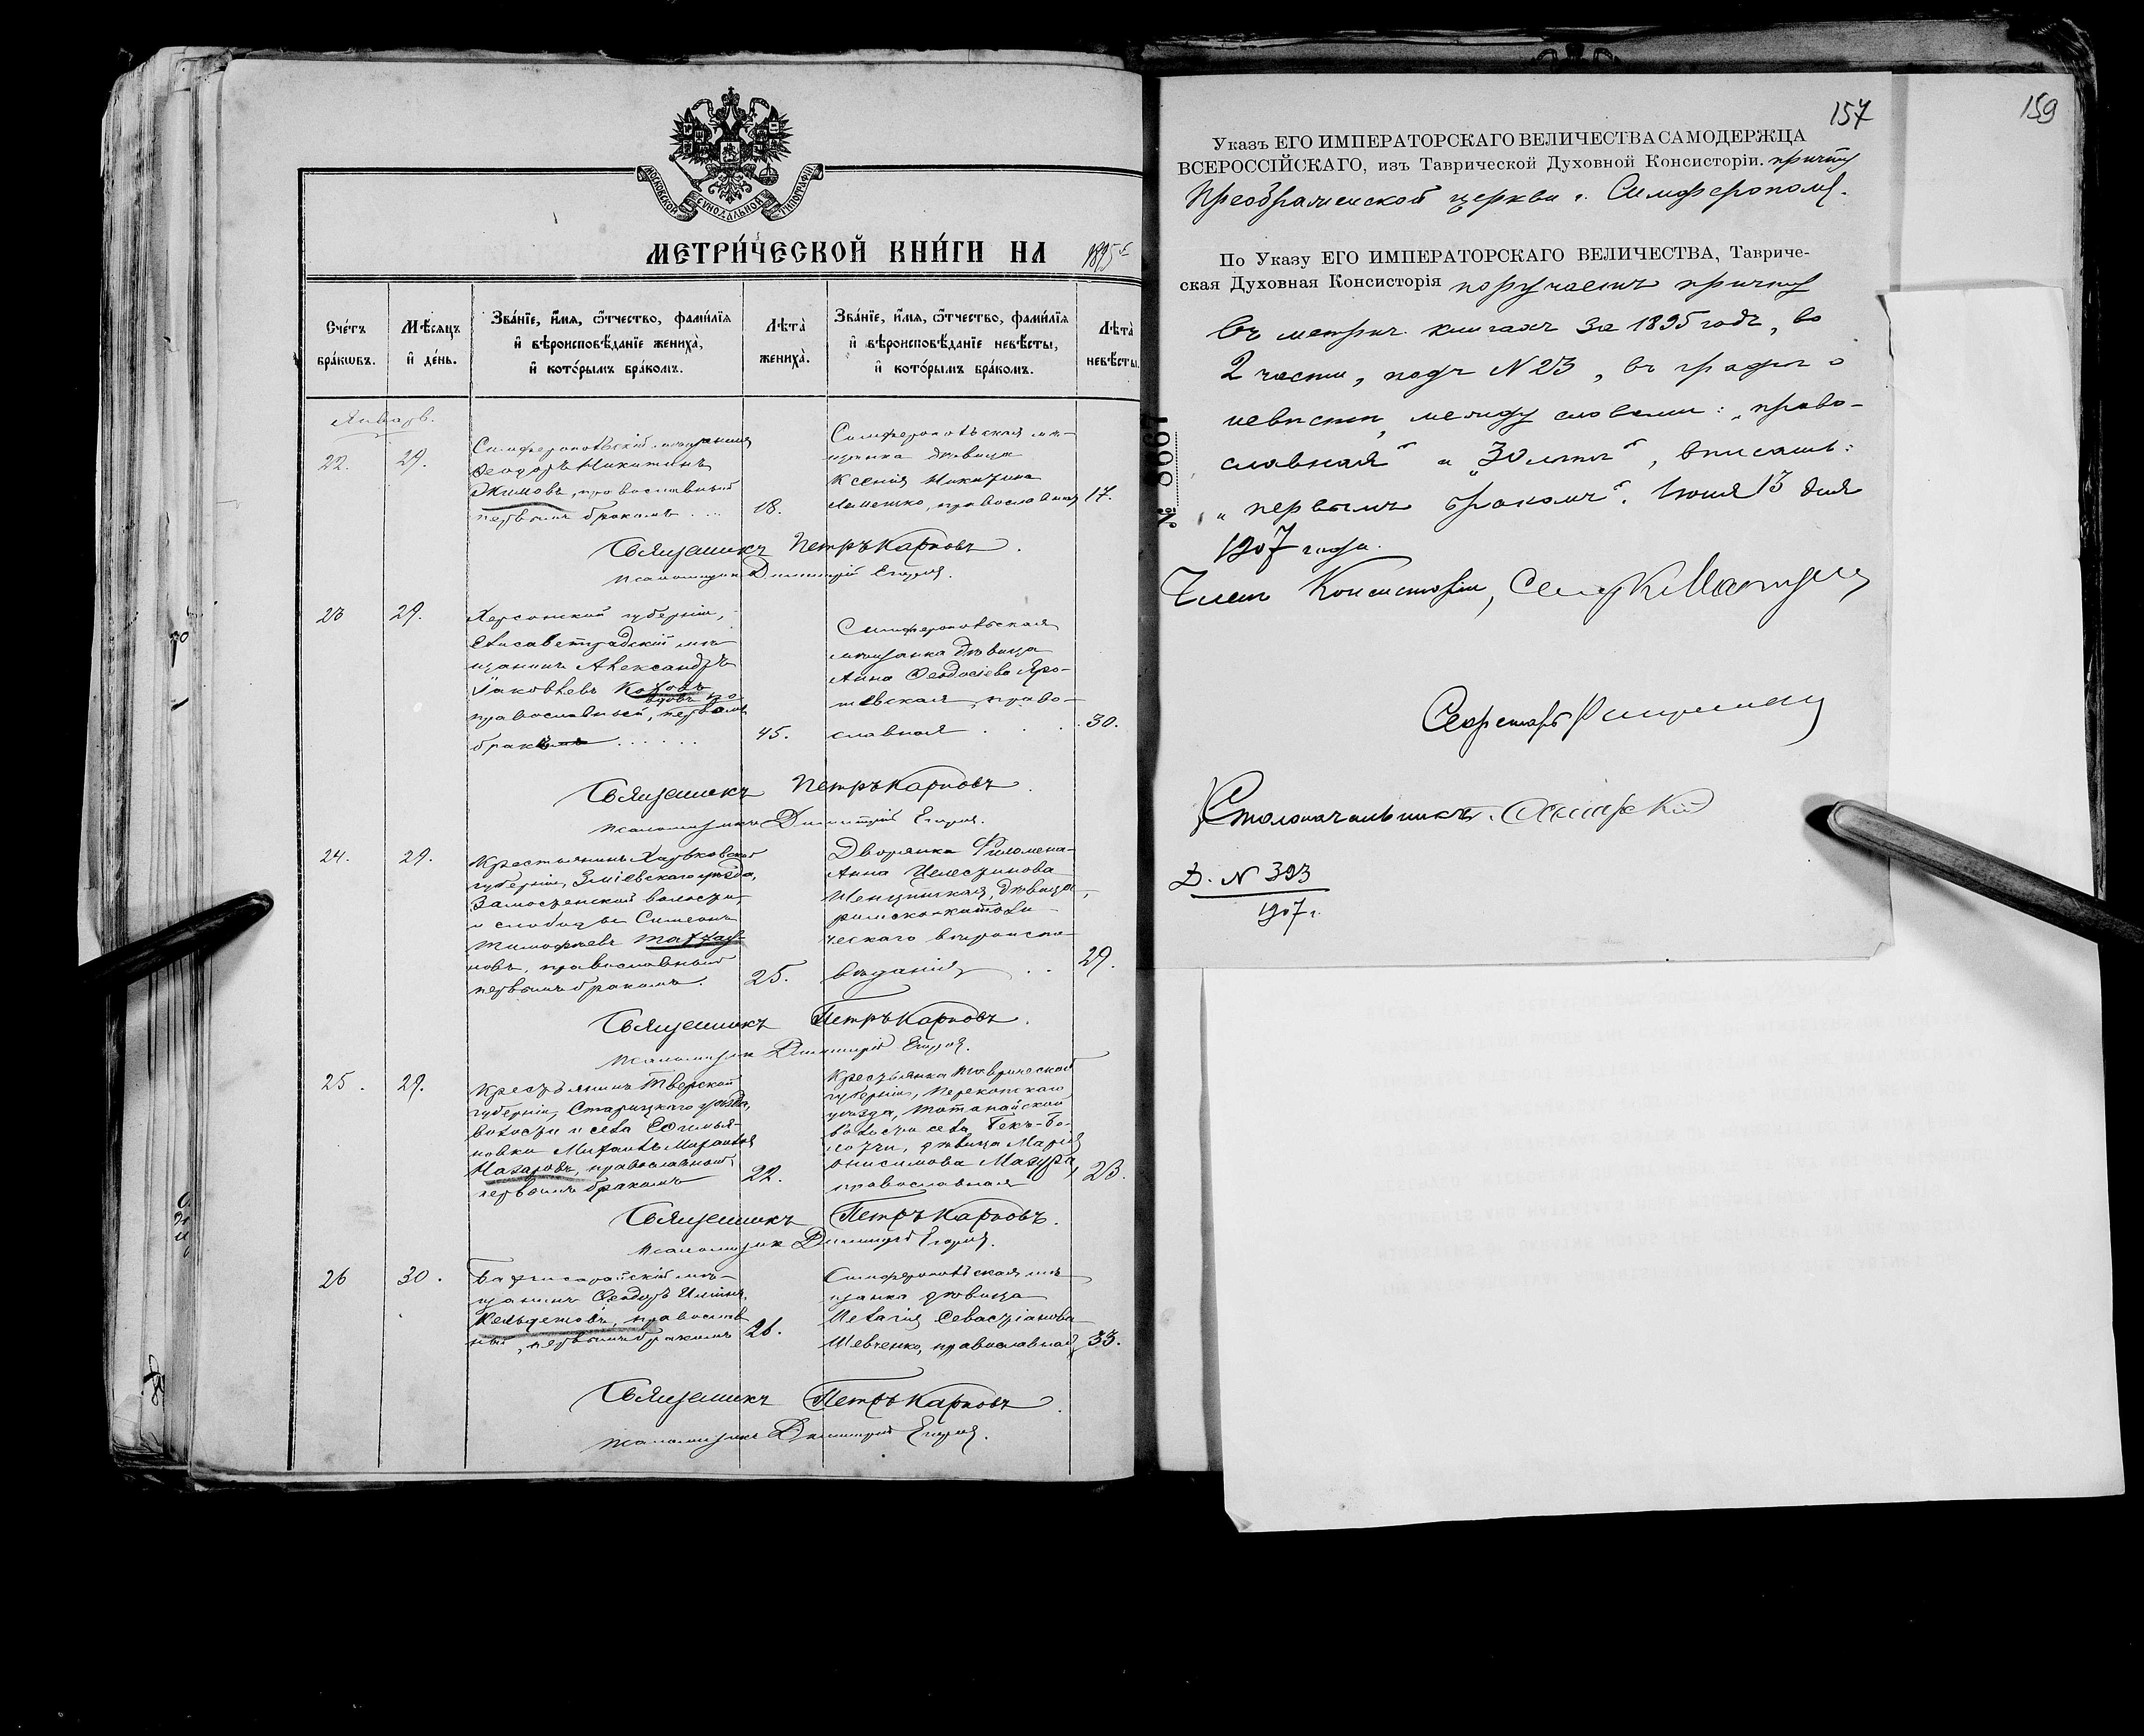 МОСКОВСКОЙ СѴНОДАЛЬНОЙ ТИПОГРАФІИ
МЕТРИ́ЧЕСКОЙ КНИ́ГИ НА 1895 г.
Счетъ браковъ.
Мѣсяцъ и день.
Званіе, имя, ѻтчество, фамилія и вѣроисповѣданіе жениха, и которымъ бракомъ.
Лѣта жениха.
Званіе, имя, ѻтчество, фамилія и вѣроисповѣданіе невѣсты, и которымъ бракомъ.
Лѣта невѣсты.
Январь.
22. 29.
Симферопольскій мѣщанинъ
Ѳеодоръ Никитинъ
Якимовъ, православный
первымъ бракомъ . . . 18.
Симферопольская мѣ-
щанка дѣвица
Ксенія Никитина
православная 17.
Священникъ Петръ Карповъ.
Псаломщикъ Димитрій
23 29.
Херсонской губерніи,
Елисаветградскій мѣ-
щанинъ Александръ
Іаковлевъ
православный, первымъ
бракомъ . . . . . . 45.
Симферопольская
мѣщанка дѣвица
Анна Ѳеодосіева Яро-
шевская, право-
славная . . . 30.
Священникъ Петръ Карповъ.
Псаломщикъ Димитрій
24. 29.
Крестьянинъ Харьковской
губерніи, Зміевскаго уѣзда,
Замостянской волости,
и слободы Симеонъ
Тимоѳеевъ
новъ, православный
первымъ бракомъ. 25.
Дворянка Филомена-
Анна Целестинова
дѣвица,
римско-католи-
ческаго вѣроиспо-
вѣданія . . 29.
Священникъ Петръ Карповъ.
Псаломщикъ Димитрій
25. 29.
Крестьянинъ Тверской
губерніи, Старицкаго уѣзда,
волости и села
новки Михаилъ Михаиловъ
Назаровъ, православный
первымъ бракомъ 22.
Крестьянка Таврической
губерніи, Перекопскаго
уѣзда,
волости села
дѣвица Марія
Онисимова Мазура,
православная 23.
Священникъ Петръ Карповъ.
Псаломщикъ Димитрій
26 30.
Бахчисарайскій мѣ-
щанинъ Ѳеодоръ Ильинъ
православ
ный, первымъ бракомъ 26.
Симферопольская мѣ
щанка дѣвица
Пелагія Севастіанова
Шевченко, православная 33.
Священникъ Петръ Карповъ.
Псаломщикъ Димитрій
157
159
Указъ ЕГО ИМПЕРАТОРСКАГО ВЕЛИЧЕСТВА САМОДЕРЖЦА
ВСЕРОССІЙСКАГО, изъ Таврической Духовной Консисторіи. причту
Преображенской церкви г. Симферополя.
По Указу ЕГО ИМПЕРАТОРСКАГО ВЕЛИЧЕСТВА, Тавриче-
ская Духовная Консисторія поручаетъ причту
въ метрич. книгахъ за 1895 годъ, во
2 части, подъ № 23, въ графѣ о
невѣстѣ, между словами: „право-
славная“ и „30 лѣтъ“, вписать:
„первымъ бракомъ“. Іюня 13 дня
1907 года.
№ 19098
Членъ Консисторіи,
Секретарь
Столоначальникъ
Д. № 393
1907 г.